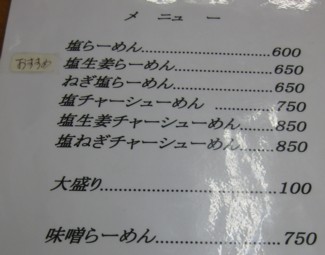 メニュー
塩らーめん.....................600
おすすめ 塩生姜らーめん................650
ねぎ塩らーめん................650
塩チャーシューめん ..........750
塩生姜チャーシューめん......850
塩ねぎチャーシューめん......850
大盛り.............................100
味噌らーめん.....................750